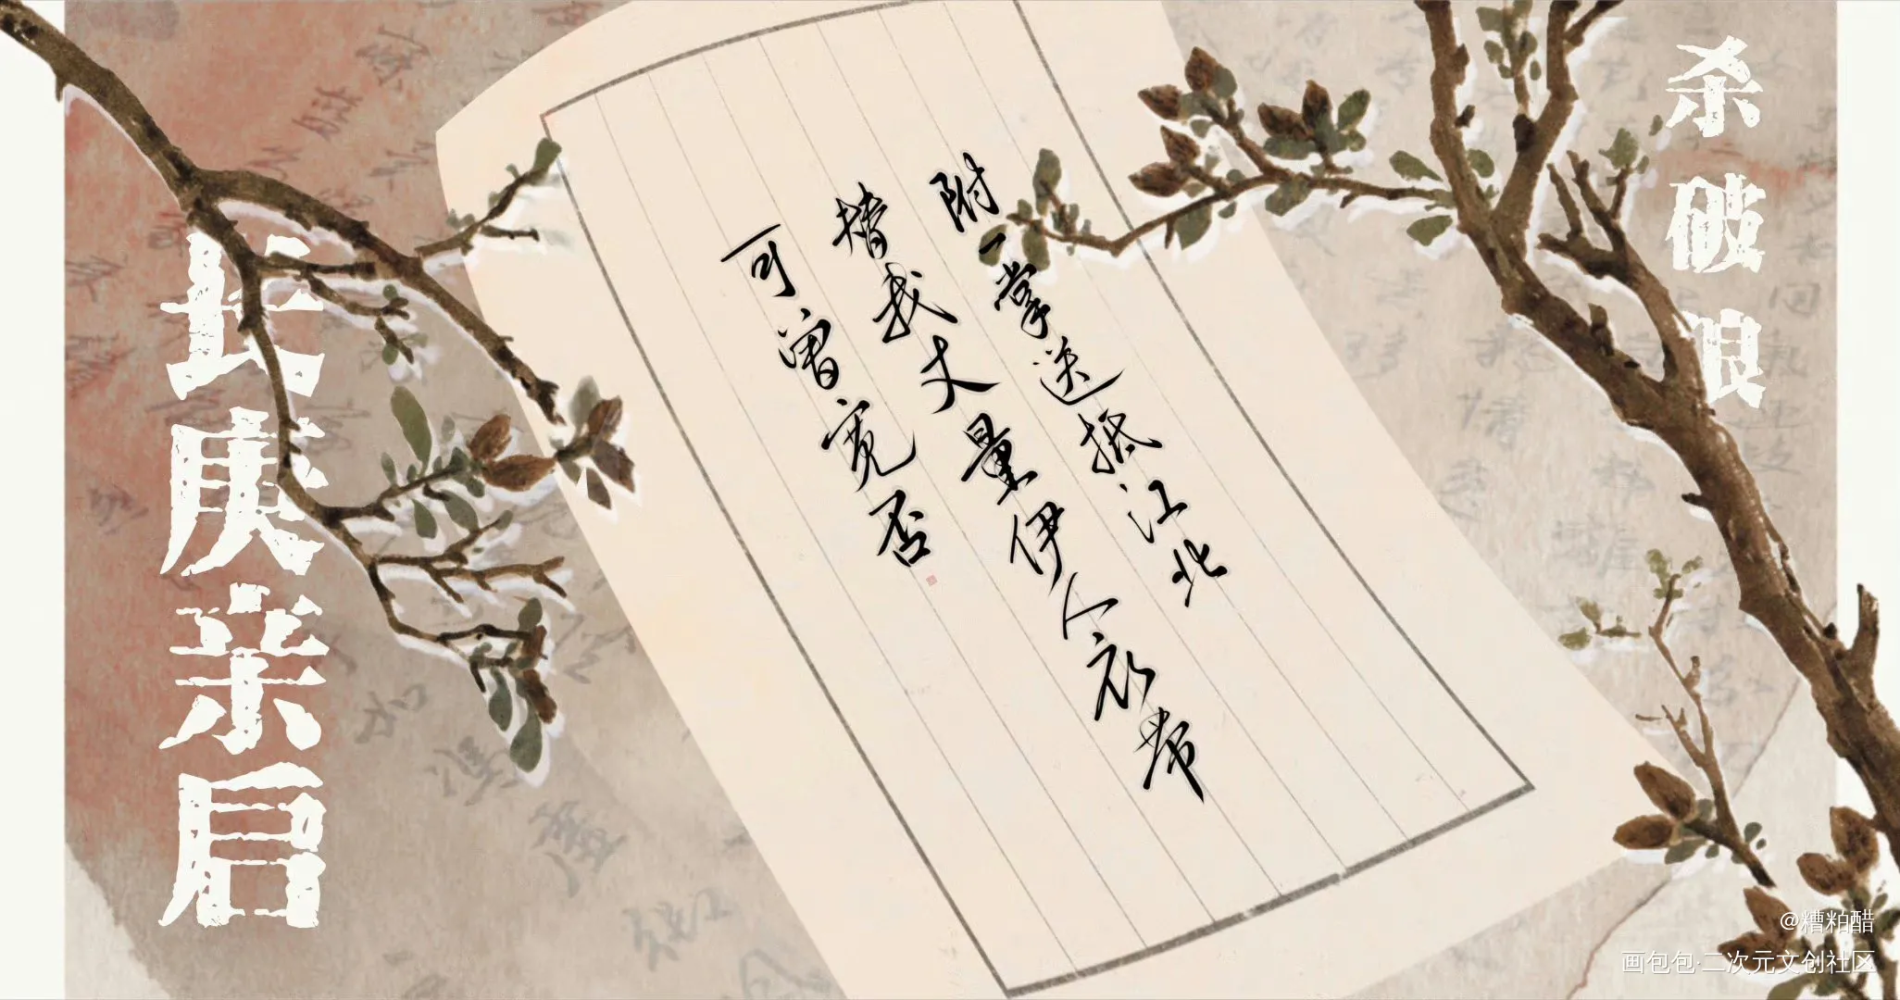 杀破浪
附一掌送抵江北
替我丈量伊人衣带
可曾宽否
长庚亲启
@糟粕醋
画包包·二次元文创社区